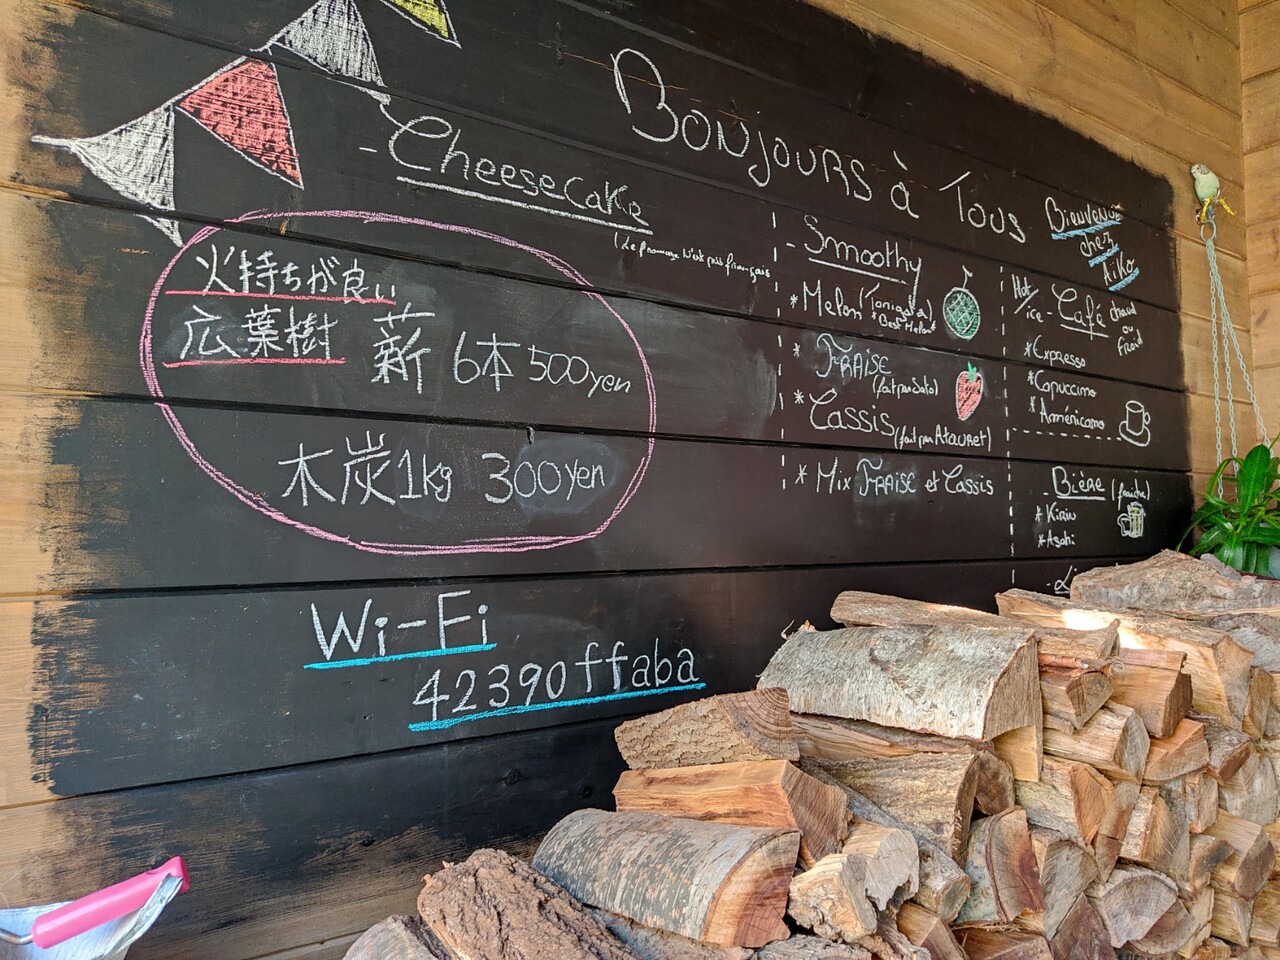 Bonjours à Tous
Bienvenue
chez
Aiko
- Cheesecake
(Le fromage n'est pas français
火持ちが良い
広葉樹 薪 6本 500yen
木炭1kg 300yen
Wi-Fi
42390ffaba
- Smoothy
* Melon
* Best Melon
* Fraise
(fait par Sato)
* Cassis (fait par Atauret)
* Mix Fraise et Cassis
Hot/ice - Café chaud
ou
froid
* Expresso
* Capuccino
* Américano
- Bière (fraiche)
* Kirin
* Asahi